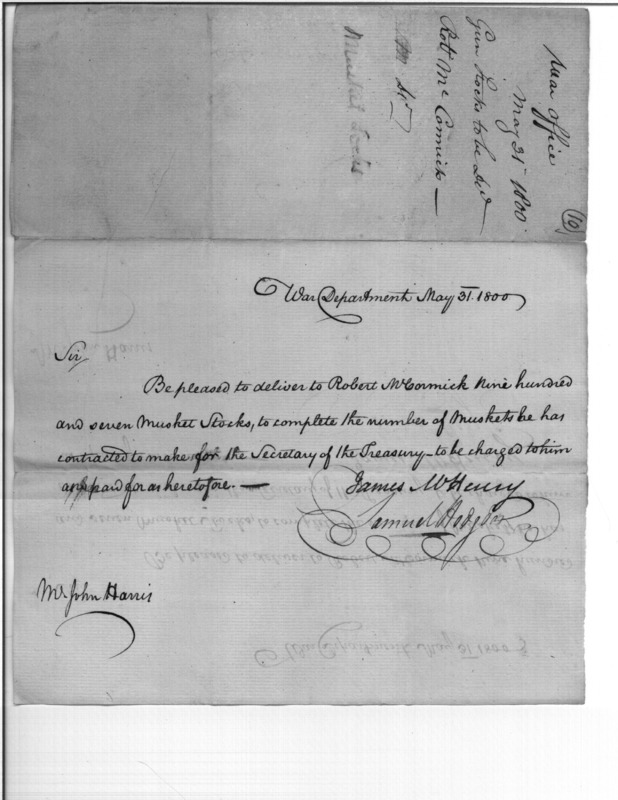 War Office
May 31st 1800
Gun Stocks to be Ded
Robt McCormick —
Musket Locks
(16)
War Department May 31. 1800
Sir,
Be pleased to deliver to Robert McCormick Nine hundred
and seven Musket Stocks, to complete the number of Muskets he has
contracted to make for the Secretary of the Treasury — to be charged to him
and paid for as heretofore. —
James McHenry
Samuel Hodgdon
Mr John Harris